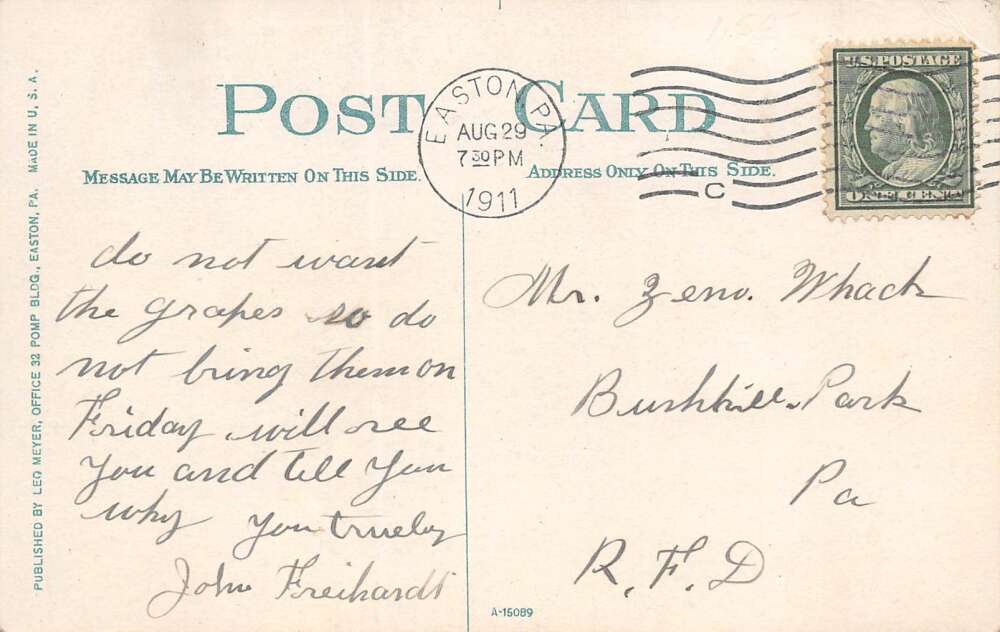 POST CARD
MESSAGE MAY BE WRITTEN ON THIS SIDE.
ADDRESS ONLY ON THIS SIDE.
EASTON, PA.
AUG 29
7 30 PM
1911
C
U.S. POSTAGE
ONE CENT
do not want
the grapes so do
not bring them on
Friday will see
You and tell You
why You truely
John Freihardt
Mr. Zeno. Whack
Bushkill. Park
Pa
R. F. D
PUBLISHED BY LEO MEYER, OFFICE 32 POMP BLDG., EASTON, PA. MADE IN U. S. A.
A-15089